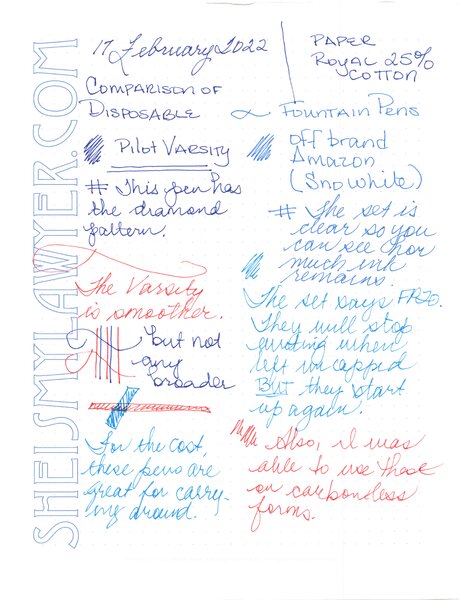 SHEISMYLAWYER.COM
17 February 2022
PAPER
ROYAL 25%
COTTON
COMPARISON OF
DISPOSABLE
FOUNTAIN PENS
PILOT VARSITY
# This pen has
the diamond
pattern.
The Varsity
is smoother.
but not
any
broader
For the cost,
these pens are
great for carry-
ing around.
off brand
Amazon
(Snowhite)
# The set is
clear so you
can see how
much ink
remains.
The set says FR70.
They will stop
writing when
left uncapped
BUT they start
up again.
Also, I was
able to use these
on carbonless
forms.